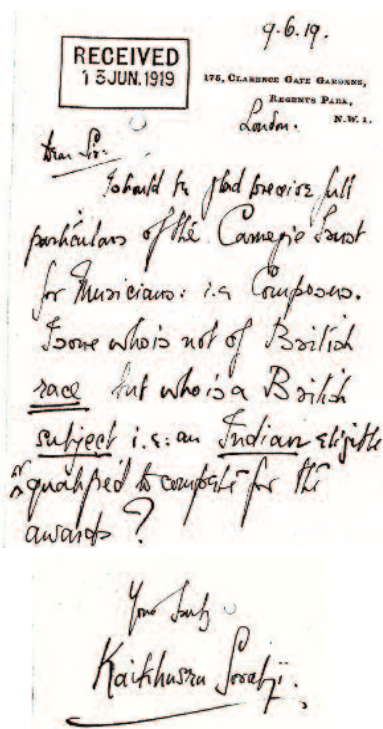 9.6.19.
RECEIVED
13 JUN. 1919
175, CLARENCE GATE GARDENS,
REGENTS PARK,
N.W. 1.
London.
Dear Sir
I should be glad to receive full
particulars of the Carnegie Trust
for Musicians: i.e. Composers.
Is one who is not of British
race but who is a British
subject i.e: an Indian eligible
or qualified to compete for the
awards?
Yours
Kaikhusru Sorabji.